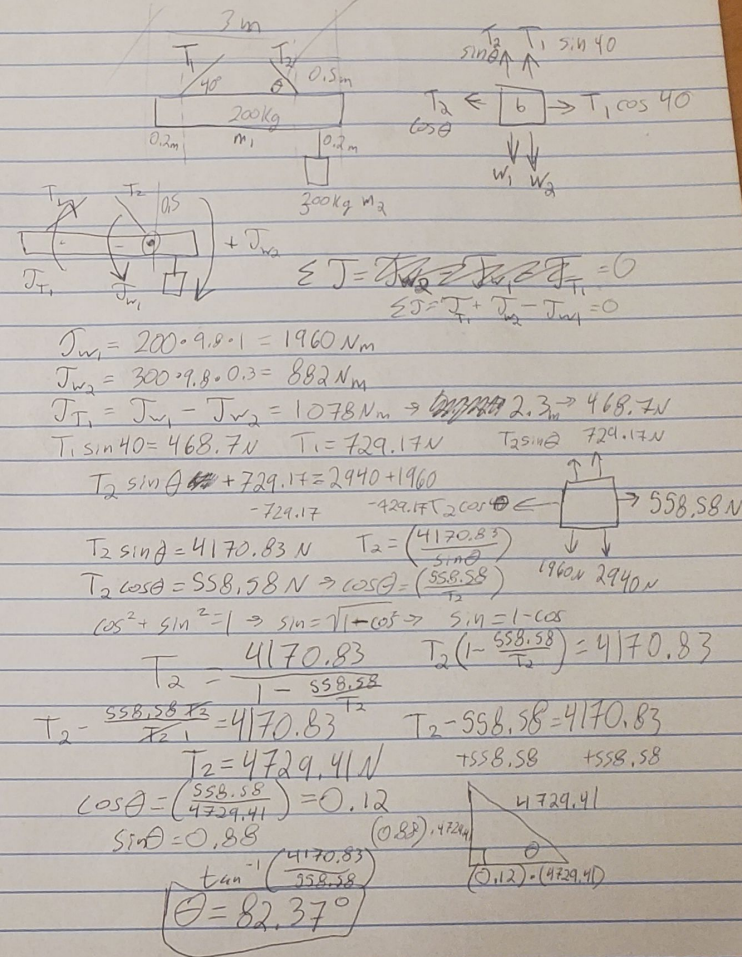 3m
T₁ T₂
40° θ 0.5m
200kg
0.2m m₁ 0.2m
300kg m₂
T₂ sinθ T₁ sin 40
T₂ cosθ ← b → T₁ cos 40
W₁ W₂
T₁ T₂ 0.5
τ_T₁ τ_w₁ + τ_w₂
Στ = = 0
Στ = τ_T₁ + τ_w₂ - τ_w₁ = 0
τ_w₁ = 200·9.8·1 = 1960 Nm
τ_w₂ = 300·9.8·0.3 = 882 Nm
τ_T₁ = τ_w₁ - τ_w₂ = 1078 Nm → 2.3m → 468.7N
T₁ sin 40 = 468.7N T₁ = 729.17N
T₂ sinθ 729.17N
T₂ sinθ + 729.17 = 2940 + 1960
-729.17 -729.17
T₂ cosθ ← → 558.58 N
1960N 2940N
T₂ sinθ = 4170.83 N T₂ = (4170.83/sinθ)
T₂ cosθ = 558.58 N ⇒ cosθ = (558.58/T₂)
cos² + sin² = 1 ⇒ sin = √1-cos² ⇒ sin = 1-cos
T₂ = 4170.83/(1 - 558.58/T₂) T₂(1 - 558.58/T₂) = 4170.83
T₂ - 558.58 T₂/T₂ 1 = 4170.83 T₂ - 558.58 = 4170.83
+558.58 +558.58
T₂ = 4729.41 N
cosθ = (558.58/4729.41) = 0.12
sinθ = 0.88
4729.41
(0.88)·4729.41
θ
(0.12)·(4729.41)
tan⁻¹ (4170.83/558.58)
θ = 82.37°